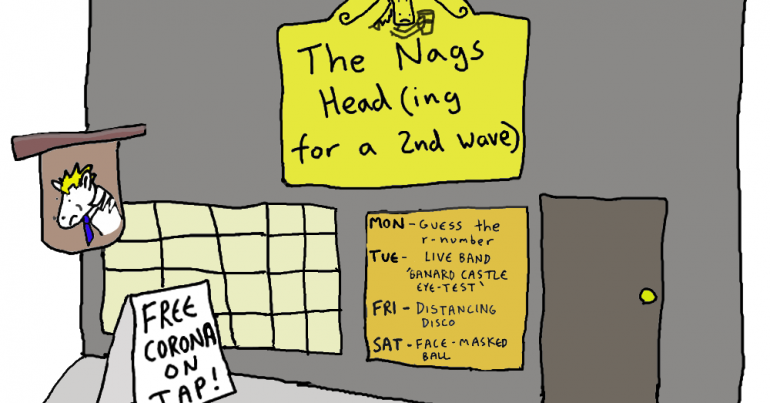 The Nags
Head(ing
for a 2nd wave)
MON - GUESS the
r-number
TUE - LIVE BAND
'BANARD CASTLE
EYE-TEST'
FRI - DISTANCING
DISCO
SAT - FACE-MASKED
BALL
FREE
CORONA
ON
TAP!